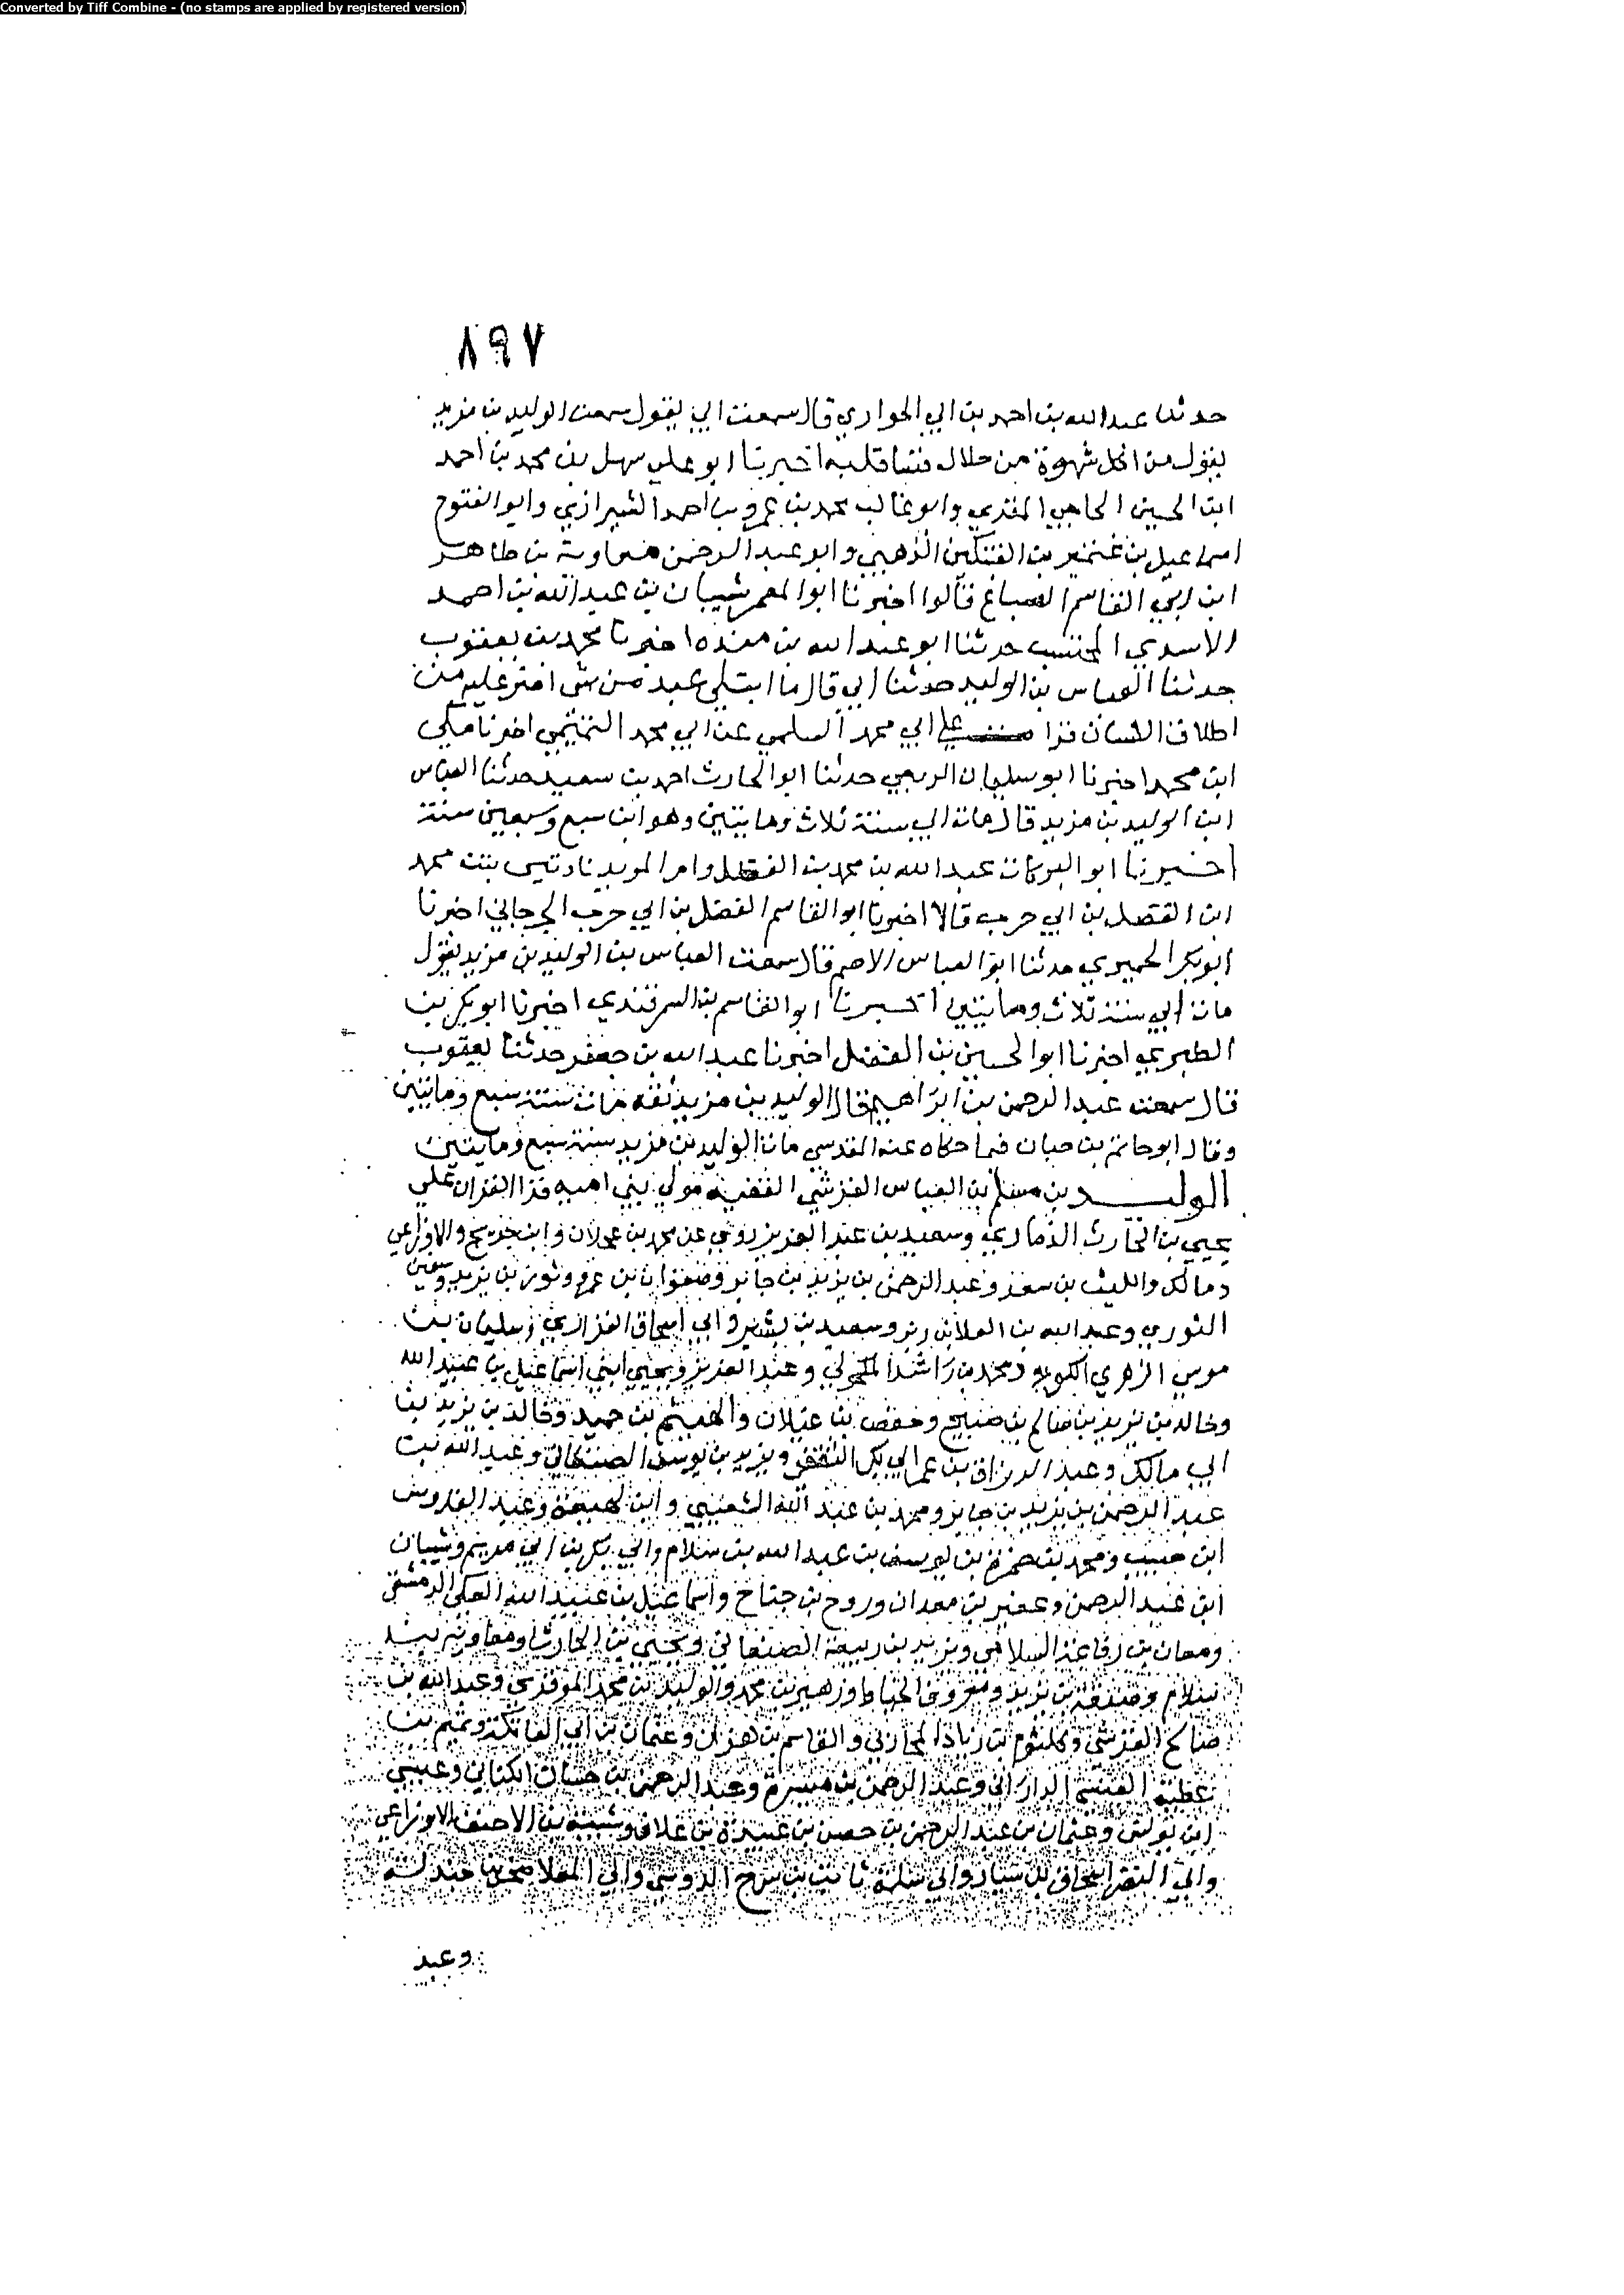 Converted by Tiff Combine - (no stamps are applied by registered version)
٨٩٧
حدثنا عبد الله بن احمد بن ابي الحواري قال سمعت ابي يقول سمعت الوليد بن مزيد
يقول من اكل شهوة من حلال قسا قلبه اخبرنا ابو علي سهل بن محمد بن احمد
ابن الحسين الحاجي المقري وابو غالب محمد بن عمرو بن احمد الشيرازي وابو الفتوح
اسماعيل بن الفتكين الذهبي وابو عبد الرحمن معاوية بن طاهر
ابن ابي القاسم الصباغ قالوا اخبرنا ابو المعمر شيبان بن عبد الله بن احمد
الاسدي المحتسب حدثنا ابو عبد الله بن منده اخبرنا محمد بن يعقوب
حدثنا العباس بن الوليد حدثنا ابي قال ما ابتلي عبد من شي اضر عليه من
اطلاق اللسان قرا علي ابي محمد السلمي عن ابي محمد التميمي اخبرنا مكي
ابن محمد اخبرنا ابو سليمان الربعي حدثنا ابو الحارث احمد بن سعيد حدثنا العباس
ابن الوليد بن مزيد قال مات ابي سنة ثلاث ومايتين وهو ابن سبع وسبعين سنة
اخبرنا ابو البركات عبد الله بن محمد بن الفضل وام المويد بنت محمد
ابن الفضل بن ابي حرب قالا اخبرنا ابو القاسم الفضل بن ابي حرب الجرجاني اخبرنا
ابو بكر الحيري حدثنا ابو العباس الاصم قال سمعت العباس بن الوليد بن مزيد يقول
مات ابي سنة ثلاث ومايتين اخبرنا ابو القاسم بن السمرقندي اخبرنا ابو بكر بن
الطبري اخبرنا ابو الحسين بن الفضل اخبرنا عبد الله بن جعفر حدثنا يعقوب
قال سمعت عبد الرحمن بن ابراهيم قال الوليد بن مزيد ثقة مات سنة سبع ومايتين
وقال ابو حاتم بن حبان فيما حكاه عنه المقدسي مات الوليد بن مزيد سنة سبع ومايتين
الوليد بن مسلم بن العباس القرشي الفقيه مولي بني اميه قرا القران علي
يحيي بن الحارث الذماري وسعيد بن عبد العزيز روي عن محمد بن عجلان وابن جريج والاوزاعي
ومالك والليث بن سعد وعبد الرحمن بن يزيد بن جابر وصفوان بن عمرو وثور بن يزيد وسفين
الثوري وعبد الله بن العلا بن زبر وسعيد بن بشير وابي اسحاق الفزاري وسليمان بن
موسي الزهري الكوفي ومحمد بن راشد المكحولي وعبد العزيز ويحيي ابني اسماعيل بن عبيد الله
وخالد بن يزيد بن صالح بن صبيح وحفص بن غيلان والهيثم بن حميد وخالد بن يزيد بن
ابي مالك وعبد الرزاق بن عمر ابي بكر الثقفي ويزيد بن يوسف الصنعاني وعبد الله بن
عبد الرحمن بن يزيد بن جابر ومحمد بن عبد الله الشعيثي وابن لهيعة وعبد القدوس
ابن حبيب ومحمد بن حمزة بن يوسف بن عبد الله بن سلام وابي بكر بن ابي مريم وشيبان
ابن عبد الرحمن وعفير بن معدان وروح بن جناح واسماعيل بن عبيد الله العكي الدمشقي
ومعان بن رفاعة السلامي ويزيد بن ربيعة الصنعاني ويحيي بن الحارث ومعاوية بن
سلام وصدقة بن يزيد ومعروف الخياط وزهير بن محمد والوليد بن محمد الموقري وعبد الله بن
صالح القرشي وكلثوم بن زياد المحاربي والقاسم بن هزان وعثمان بن ابي العاتكة وتميم بن
عطية العنسي الداراني وعبد الرحمن بن ميسرة وعبد الرحمن بن حسان الكناني وعيسي
ابن يونس وعثمان بن عبد الرحمن بن حصن بن عبيدة بن علاق وشيبة بن الاحنف الاوزاعي
وابي النضر اسحاق بن سيار وابي سلمة ثابت بن سرح الدوسي وابي المعلا صخر بن جندلة
وعبد